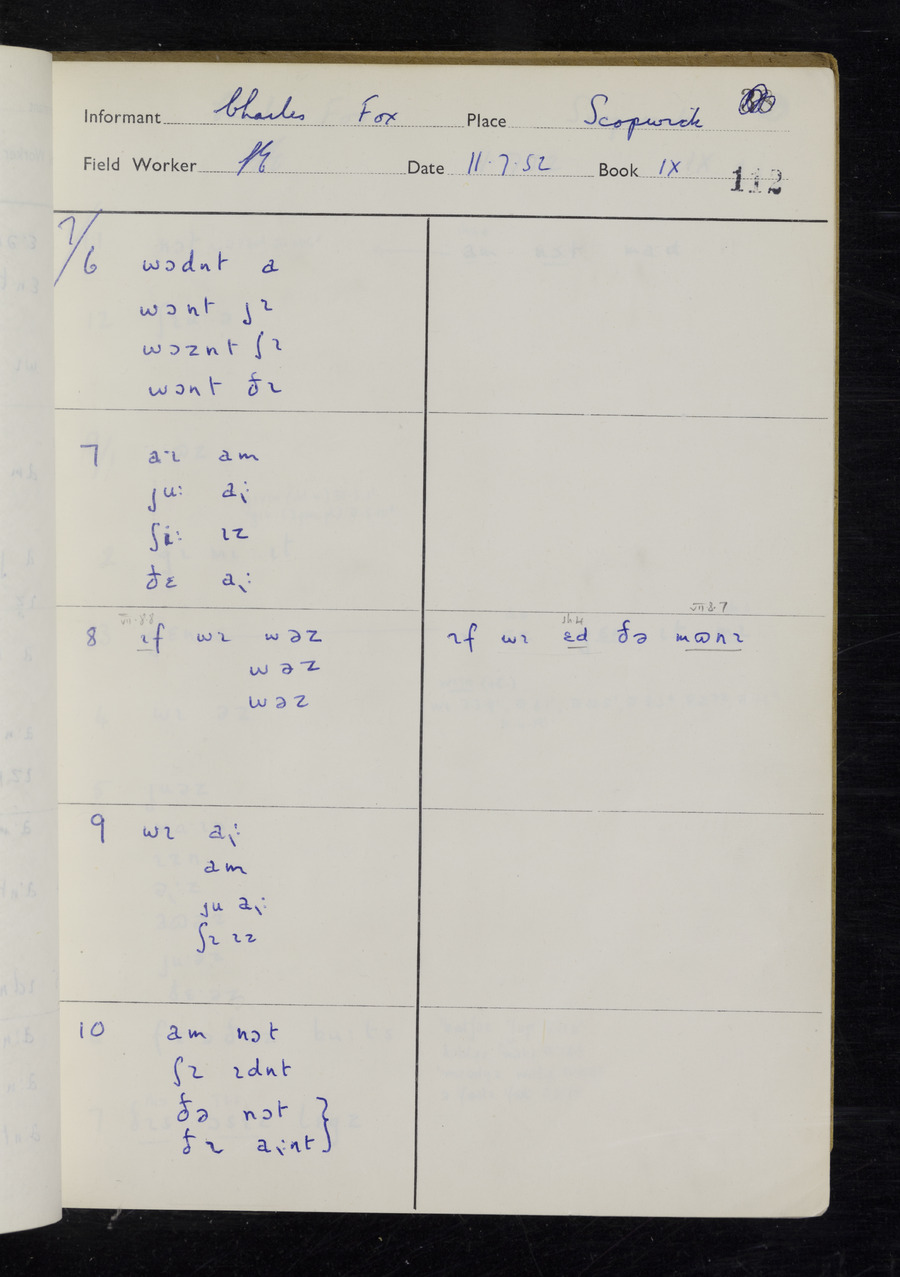 Informant Charles Fox Place Scopwick
Field Worker Date 11.7.52 Book IX
112
7/
6 wɔdnt a
wɔnt jɪ
wɔznt ʃɪ
wɔnt ðɪ
7 aˑɪ am
juː a̢ː
ʃiː ɪz
ðɛ a̢ː
8 ɪf wɪ wəz
wəz
wəz
VII.8.8
ɪf wɪ ɛd ðə mɷnɪ
VII.8.7
9 wɪ a̢ː
am
ju a̢ː
ʃɪ ɪz
10 am nɔt
ʃɪ ɪdnt
ðə nɔt }
ðɪ a̢ːnt }